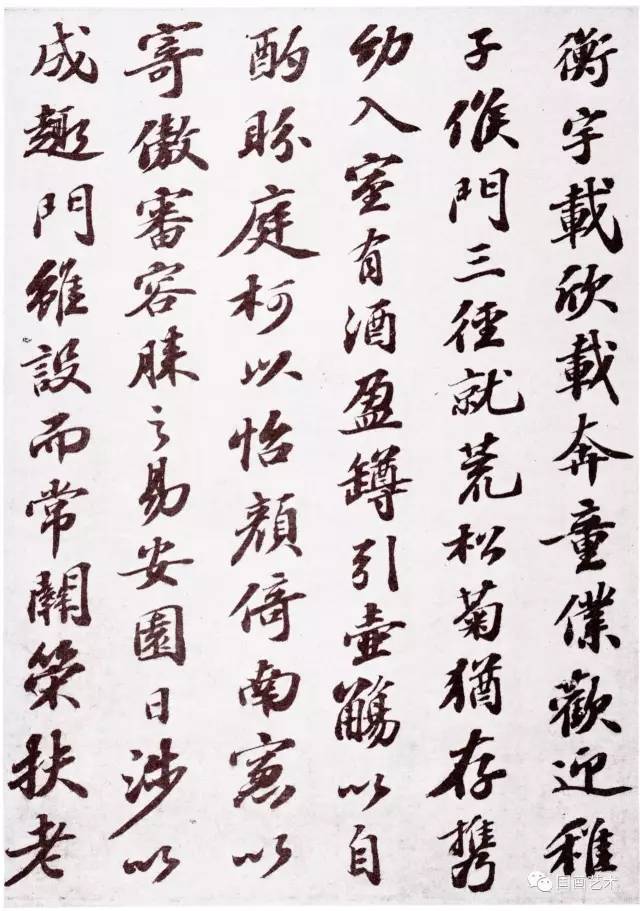 衡宇載欣載奔童僕歡迎稚
子候門三徑就荒松菊猶存携
幼入室有酒盈罇引壺觴以自
酌眄庭柯以怡顏倚南窓以
寄傲審容膝之易安園日涉以
成趣門雖設而常關策扶老
国画艺术